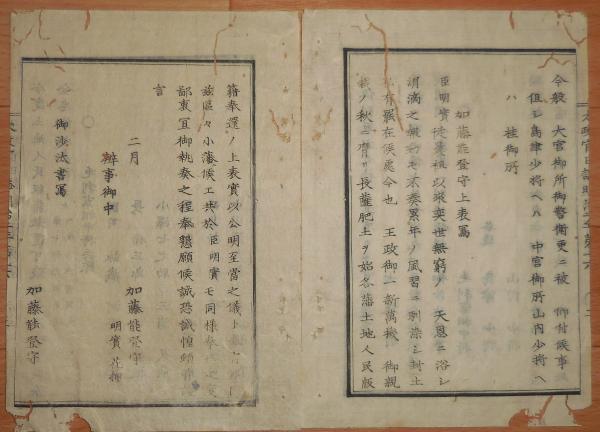 今般 大宮御所御警衛更ニ被 仰付候事
但シ島津少将ヘハ 中宮御所山内少将ヘ
ハ 桂御所
加藤能登守上表写
臣明實徒襲祖以來奕世無窮ノ 天恩ニ浴シ
涓滴之報効モ不奏累年ノ風習ニ
有罷在候處今也 王政御一新萬機 御親
裁ノ秋ニ膺リ長薩肥土ヲ始各藩土地人民版
籍奉還ノ上表實以公明至當之儀ト
玆區々小藩候エ共於臣明實モ同様奉
鄙衷宜御執奏之程奉懇願候誠恐誠惶頓首
言
二月 加藤能登守
明實 花押
辨事御中
御沙汰書写
加藤能登守